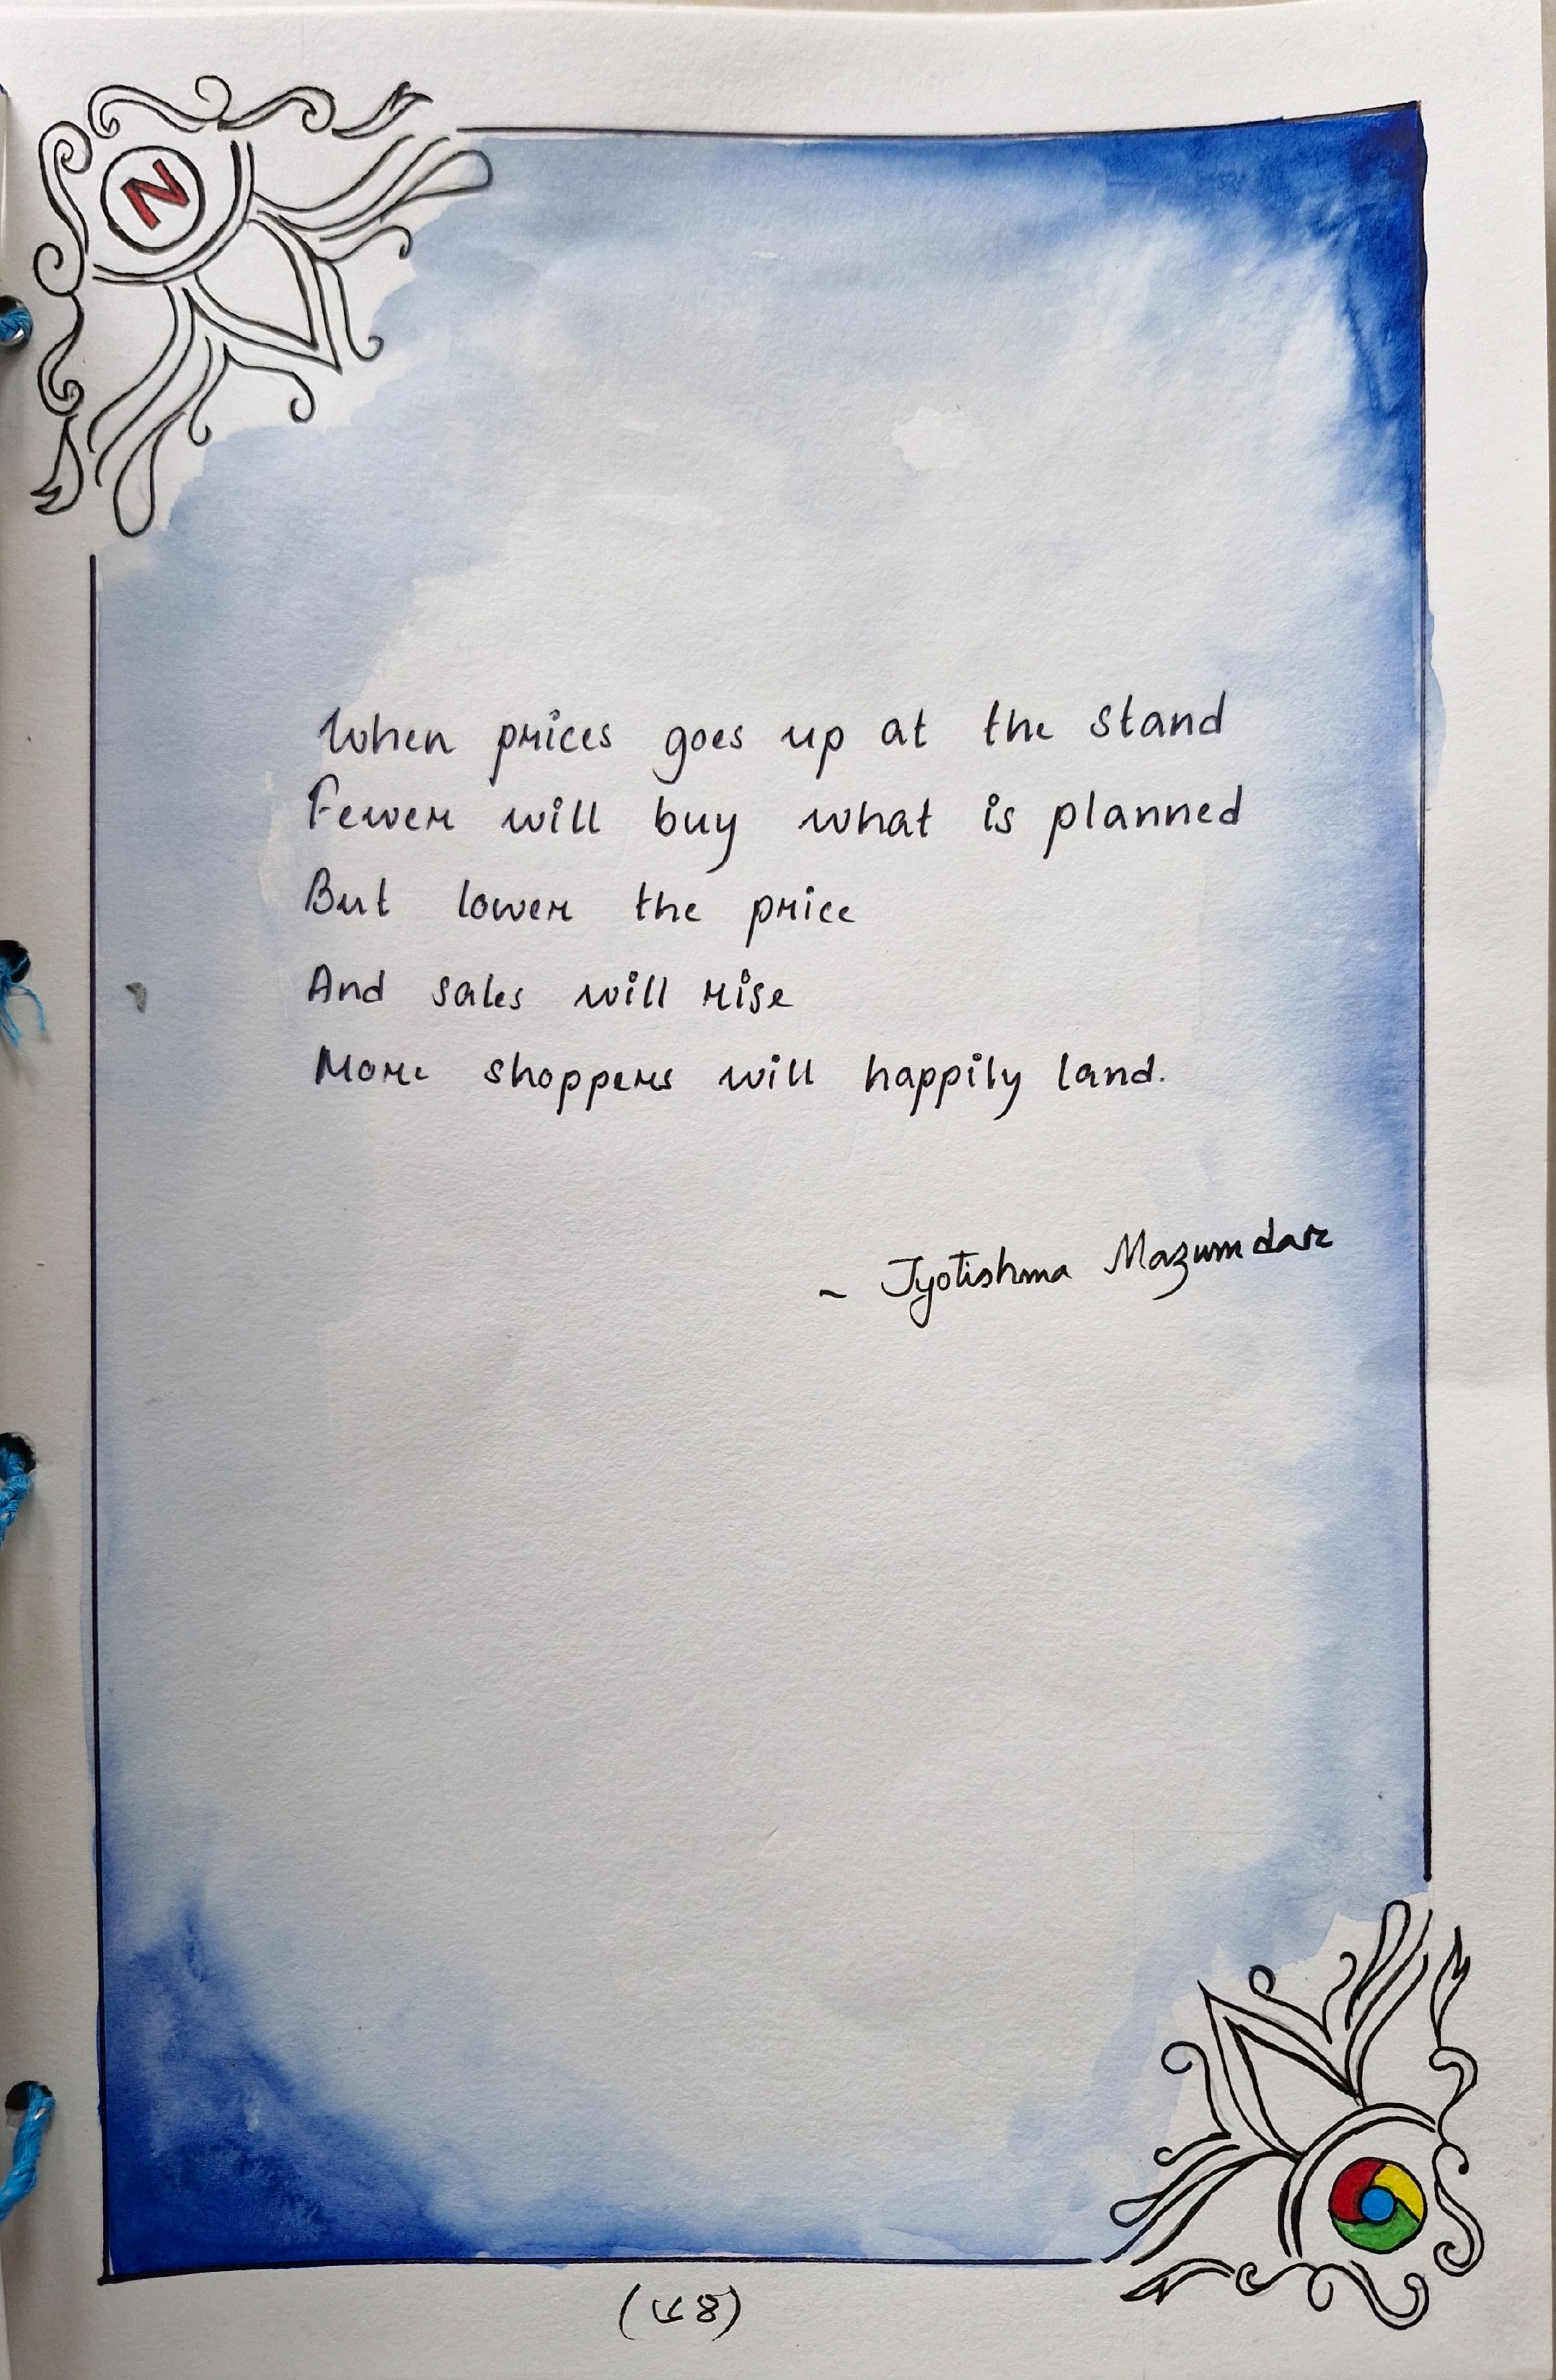 N
When prices goes up at the stand
Fewer will buy what is planned
But lower the price
And sales will rise
More shoppers will happily land.
~ Jyotishma Mazumdar